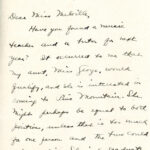 Dear Miss Melville,
Have you found a music
teacher and a tutor for next
year? It occurred to me that
my aunt, Miss George would
qualify, and she is interested in
coming to Pine Mountain. She
might perhaps be equal to both
positions, unless that is too much
for one person and the two could